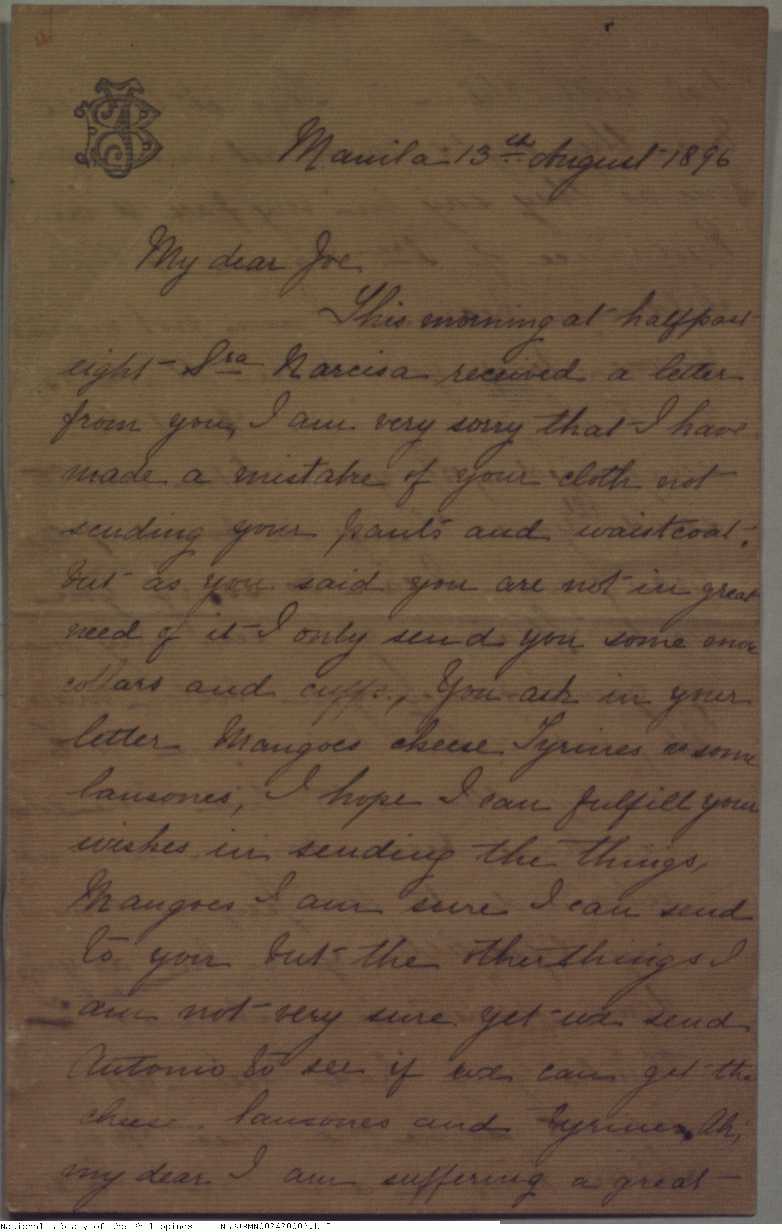 Manila 13th August 1896
My dear Joe
This morning at half past
eight Sra Narcisa received a letter
from you, I am very sorry that I have
made a mistake of your cloth not
sending your pants and waistcoat.
but as you said you are not in great
need of it I only send you some more
collars and cuffs., You ask in your
letter Mangoes cheese Tyrines & some
lansones, I hope I can fulfill your
wishes in sending the things,
Mangoes I am sure I can send
to you but the other things I
am not very sure yet we send
Antonio to see if we can get the
cheese. lansones and Tyrines, Ah,
my dear I am suffering a great
National Library of the Philippines